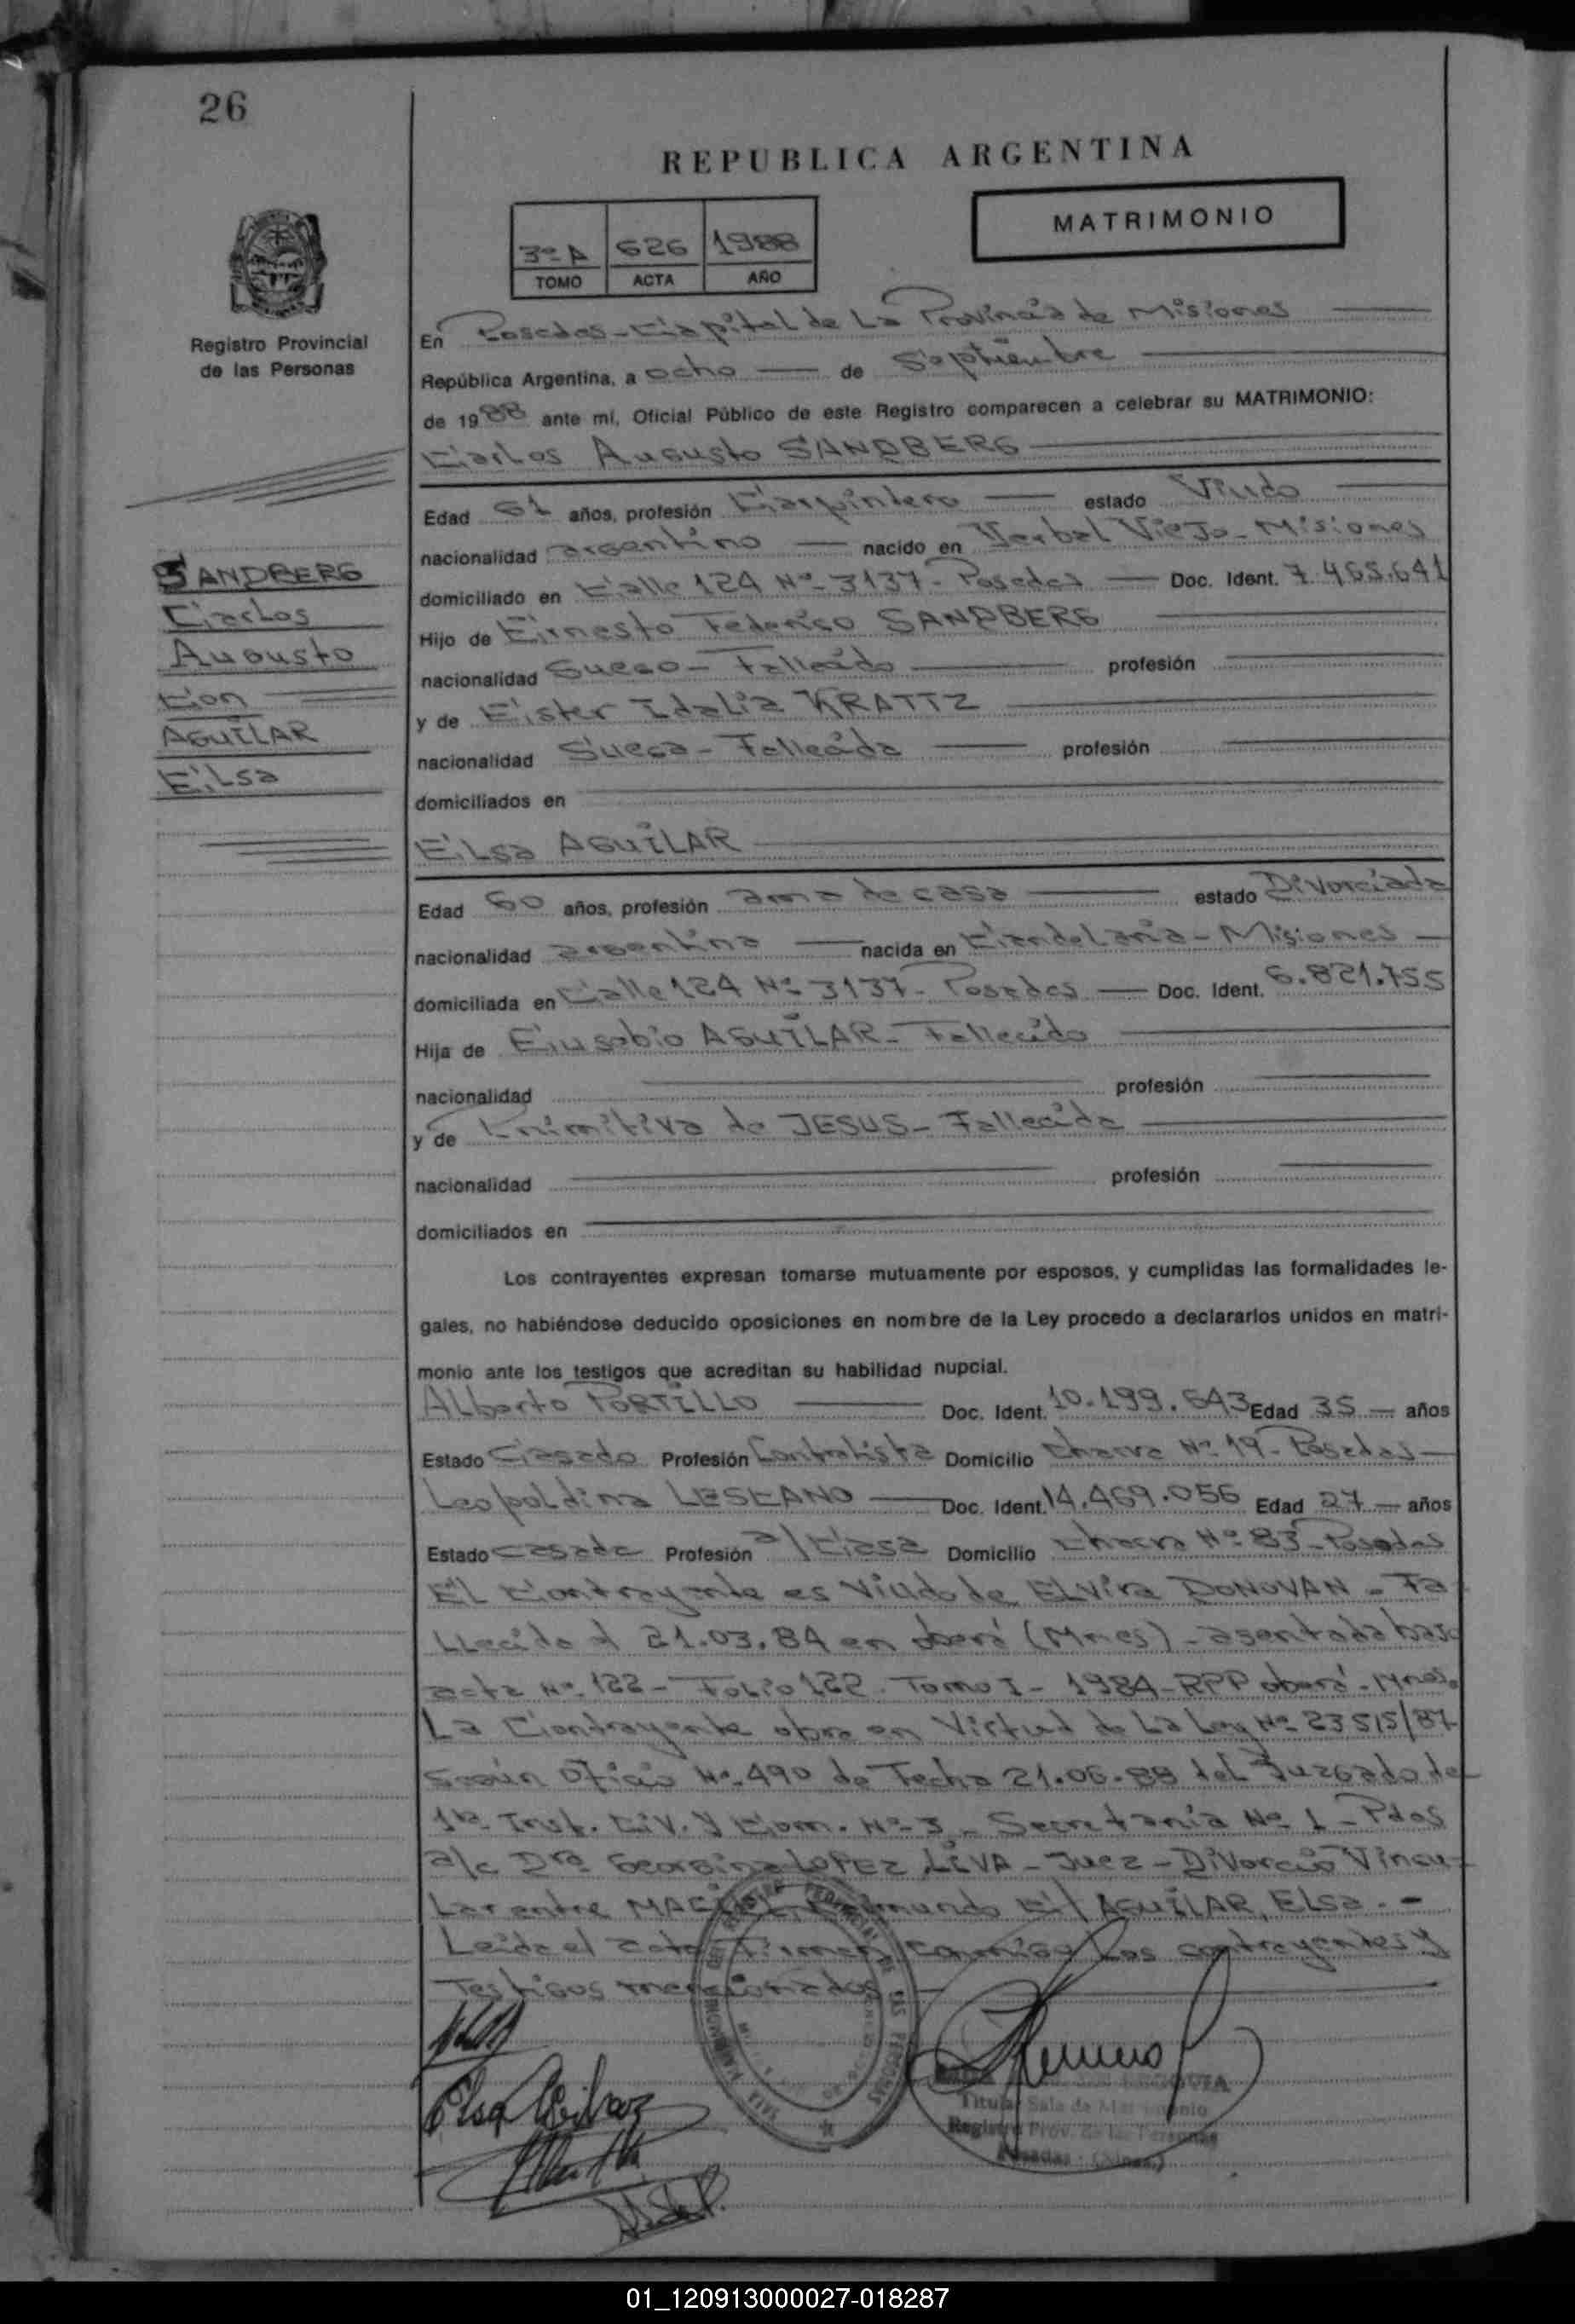 26
REPUBLICA ARGENTINA
MATRIMONIO
3º A 626 1988
TOMO ACTA AÑO
Registro Provincial
de las Personas
En Posadas-Capital de La Provincia de Misiones
República Argentina, a ocho de Septiembre
de 1988 ante mí, Oficial Público de este Registro comparecen a celebrar su MATRIMONIO:
Carlos Augusto SANDBERG
Edad 61 años, profesión Carpintero estado Viudo
nacionalidad argentino nacido en Yerbal Viejo-Misiones
domiciliado en Calle 124 Nº 3137-Posadas Doc. Ident. 7.465.641
Hijo de Ernesto Federico SANDBERG
nacionalidad Sueco-Fallecido profesión
y de Ester Idalia KRATTZ
nacionalidad Sueca-Fallecida profesión
domiciliados en
SANDBERG
Carlos
Augusto
Con
AGUILAR
Elsa
Elsa AGUILAR
Edad 60 años, profesión ama de casa estado Divorciada
nacionalidad argentina nacida en Candelaria-Misiones
domiciliada en Calle 124 Nº 3137-Posadas Doc. Ident. 6.821.755
Hija de Eusebio AGUILAR-Fallecido
nacionalidad profesión
y de Primitiva de JESUS-Fallecida
nacionalidad profesión
domiciliados en
Los contrayentes expresan tomarse mutuamente por esposos, y cumplidas las formalidades le-
gales, no habiéndose deducido oposiciones en nombre de la Ley procedo a declararlos unidos en matri-
monio ante los testigos que acreditan su habilidad nupcial.
Alberto PORTILLO Doc. Ident. 10.199.643 Edad 35 años
Estado Casado Profesión Contratista Domicilio Chacra Nº 19-Posadas
Leopoldina LESCANO Doc. Ident. 14.469.056 Edad 27 años
Estado casada Profesión a/Casa Domicilio Chacra Nº 83-Posadas
El Contrayente es Viudo de ELvira DONOVAN-Fa-
Llecida el 21.03.84 en oberá (Mnes)-asentada bajo
acta Nº 122-Folio 122. Tomo I-1984-RPP oberá-Mnes.
La Contrayente obra en Virtud de La Ley Nº 23515/87
según Oficio Nº 490 de Fecha 21.06.88 del Juzgado de
1ra Inst. Civ. y Com. Nº 3-Secretaría Nº 1-Pdas
a/c Dra Georgina LOPEZ LIVA-Juez-Divorcio Vincu-
Lar entre C/ AGUILAR, ELsa.-
Leida el acta Firman conmigo Los contrayentes y
Testigos mencionados
Elsa Aguilar
Titular Sala de Matrimonio
Registro Prov. de las Personas
Posadas - (Mnes.)
01_120913000027-018287